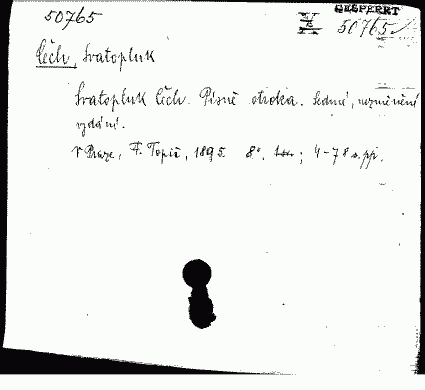 50765
GESPERRT
50765
Čech, Svatopluk
Svatopluk Čech. Písně otroka. Sedmé, nezměněné
vydání.
V Praze, F. Topič, 1895. 8°. ; 4-78 s. pp.